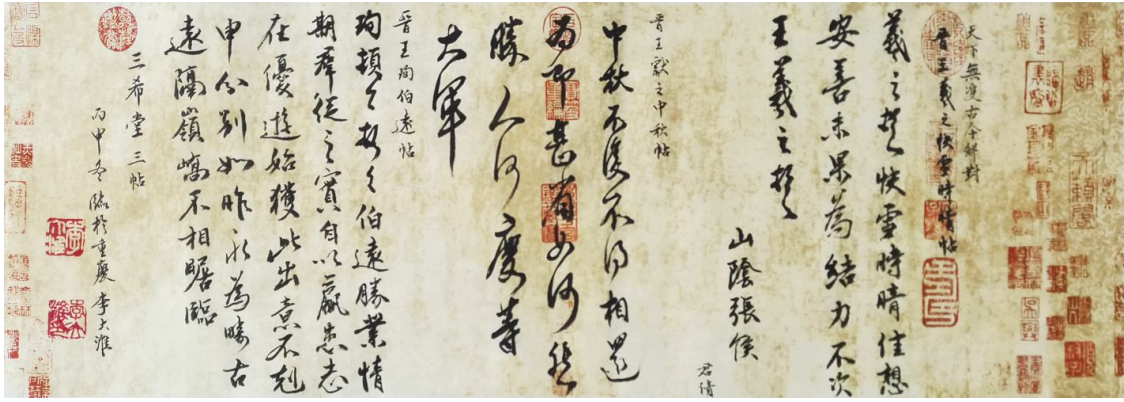 天下無雙古今鮮對
晉王羲之快雪時晴帖
羲之頓首快雪時晴佳想
安善未果為結力不次
王羲之頓首
山陰張侯
君倩
晉王獻之中秋帖
中秋不復不得相還
為即甚省如何然
勝人何慶等
大軍
晉王珣伯遠帖
珣頓首頓首伯遠勝業情
期羣從之寶自以羸患志
在優遊始獲此出意不剋
申分別如昨永為疇古
遠隔嶺嶠不相瞻臨
三希堂三帖
丙申冬臨於重慶李大淮